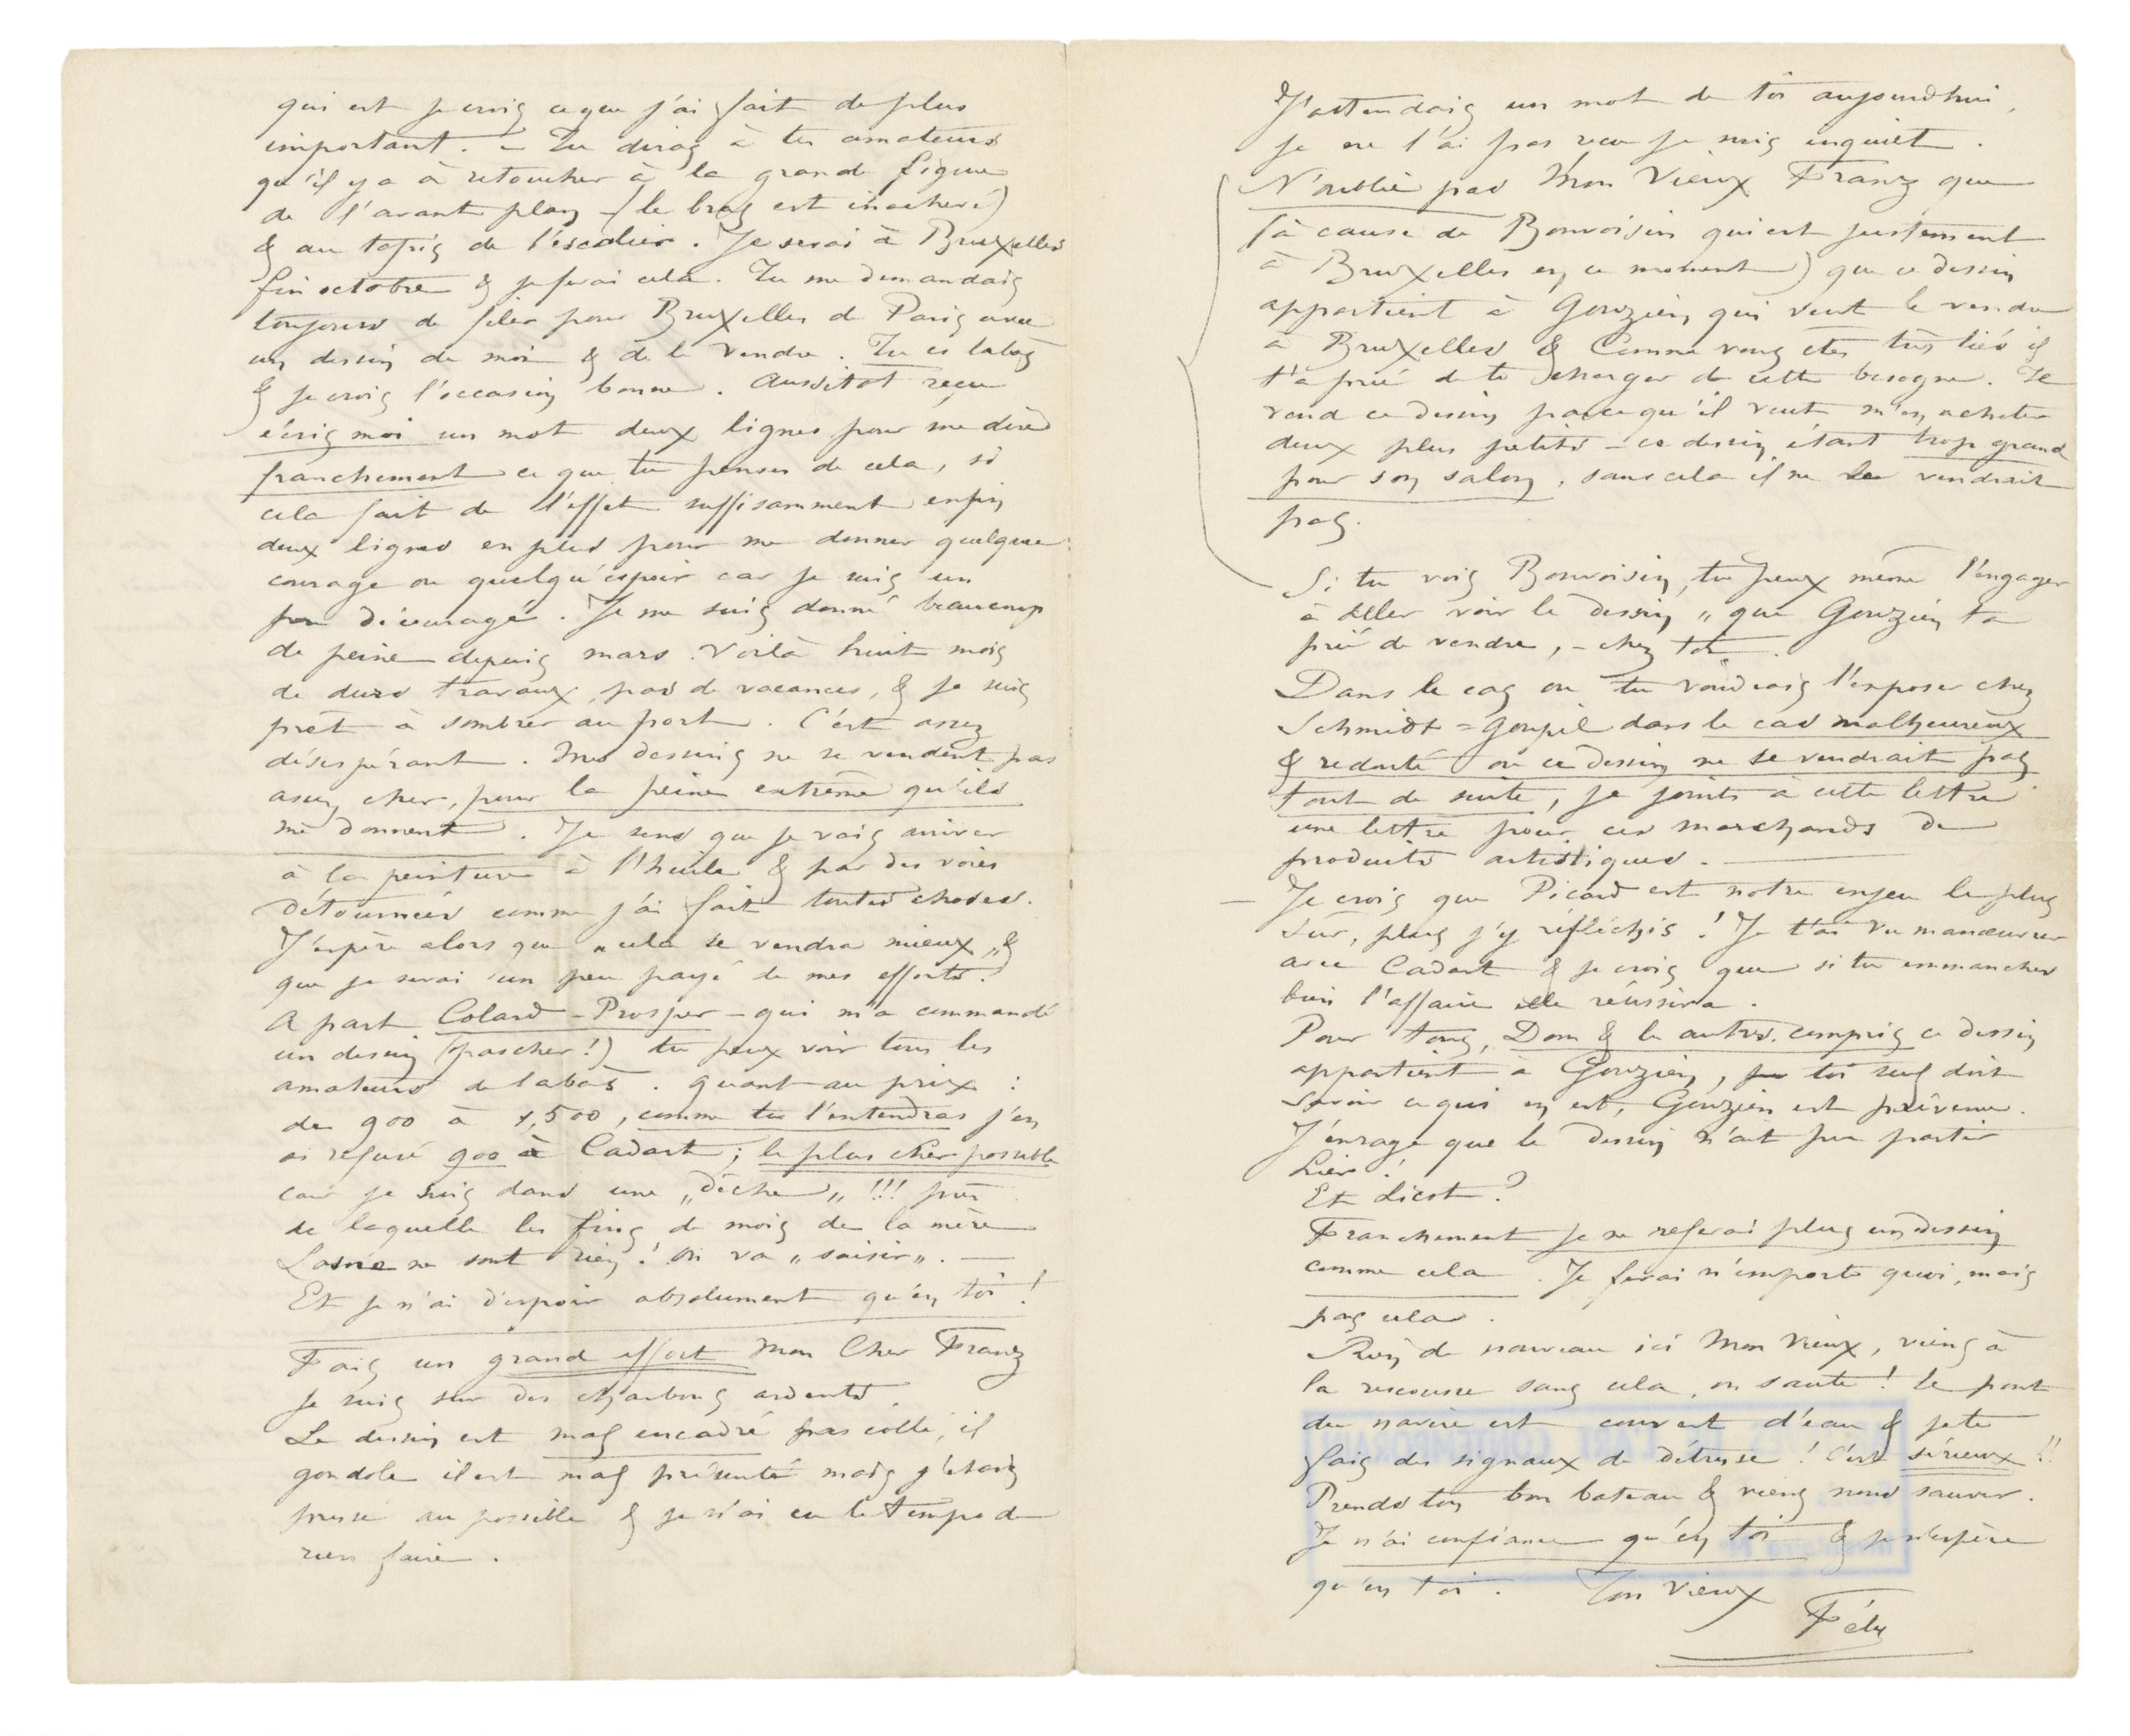 qui est je crois ce que j'ai fait de plus
important. – Tu diras à tes amateurs
qu'il y a à retoucher à la grande figure
de l'avant plan – (le bras est inachevé)
& au tapis de l'escalier. Je serai à Bruxelles
fin octobre & je ferai cela. Tu me demandais
toujours de filer pour Bruxelles de Paris avec
un dessin de moi & de le vendre. Tu es labas
& je crois l'occasion bonne. Aussitot reçu
écris moi un mot deux lignes pour me dire
franchement ce que tu penses de cela, si
cela fait de l'effet suffisamment enfin
deux lignes en plus pour me donner quelque
courage ou quelqu'espoir car je suis un
peu découragé. Je me suis donné beaucoup
de peine depuis mars. Voilà huit mois
de durs travaux, pas de vacances, & je suis
prêt à sombrer au port. C'est assez
désespérant. Mes dessins ne se vendent pas
assez cher, pour la peine extrême qu'ils
me donnent. Je sens que je vais arriver
à la peinture à l'huile & par des voies
détournées comme j'ai fait toutes choses.
J'espère alors que „cela se vendra mieux„ &
que je serai un peu payé de mes efforts.
A part Colard – Prosper – qui m'a commandé
un dessin (pas cher!) tu peux voir tous les
amateurs de labas. Quant au prix :
de 900 à 1,500, comme tu l'entendras j'en
ai refusé 900 à Cadart ; le plus cher possible
car je suis dans une „dèche„ !!! près
de laquelle les fins de mois de la mère
ne sont rien ! On va „saisir„. —
Et je n'ai d'espoir absolument qu'en toi !
Fais un grand effort Mon Cher Franz
je suis sur des charbons ardents.
Le dessin est mal encadré pas collé, il
gondole il est mal présenté mais j'étais
pressé au possible & je n'ai eu le temps de
rien faire.
J'attendais un mot de toi aujourdhui,
je ne l'ai pas reçu je suis inquiet.
N'oublie pas Mon Vieux Franz que
(à cause de Bonvoisin qui est justement
à Bruxelles en ce moment) que ce dessin
appartient à Gouzien qui veut le vendre
à Bruxelles & Comme vous êtes très liés il
t'a prié de te charger de cette besogne. Il
vend ce dessin parce qu'il veut m'en acheter
deux plus petits – ce dessin étant trop grand
pour son salon, sans cela il ne le vendrait
pas.
Si tu vois Bonvoisin, tu peux même l'engager
à aller voir le dessin „que Gouzien t'a
prié de vendre, – chez toi.
Dans le cas ou tu voudrais l'exposer chez
Schmidt = Goupil dans le cas malheureux
& redouté ou ce dessin ne se vendrait pas
tout de suite, je joints à cette lettre
une lettre pour ces marchands de
produits artistiques. —
– Je crois que Picard est notre enjeu le plus
sûr, plus j'y réfléchis ! Je t'ai vu manœuvrer
avec Cadart & je crois que si tu emmanches
bien l'affaire elle réussira.
Pour tous, Dom & les autres compris ce dessin
appartient à Gouzien, toi seul doit
savoir ce qui en est, Gouzien est prévenu.
J'enrage que le dessin n'ait pu partir
hier !
Et Liest ?
Franchement je ne referai plus un dessin
comme cela. Je ferai n'importe quoi, mais
pas cela.
Rien de nouveau ici Mon Vieux, viens à
la rescousse sans cela, on saute ! le pont
du navire est couvert d'eau & je te
fais des signaux de détresse ! C'est sérieux !!
Prends ton bon bateau & viens nous sauver.
Je n'ai confiance qu'en toi & je n'espère
qu'en toi. Ton vieux
Fély